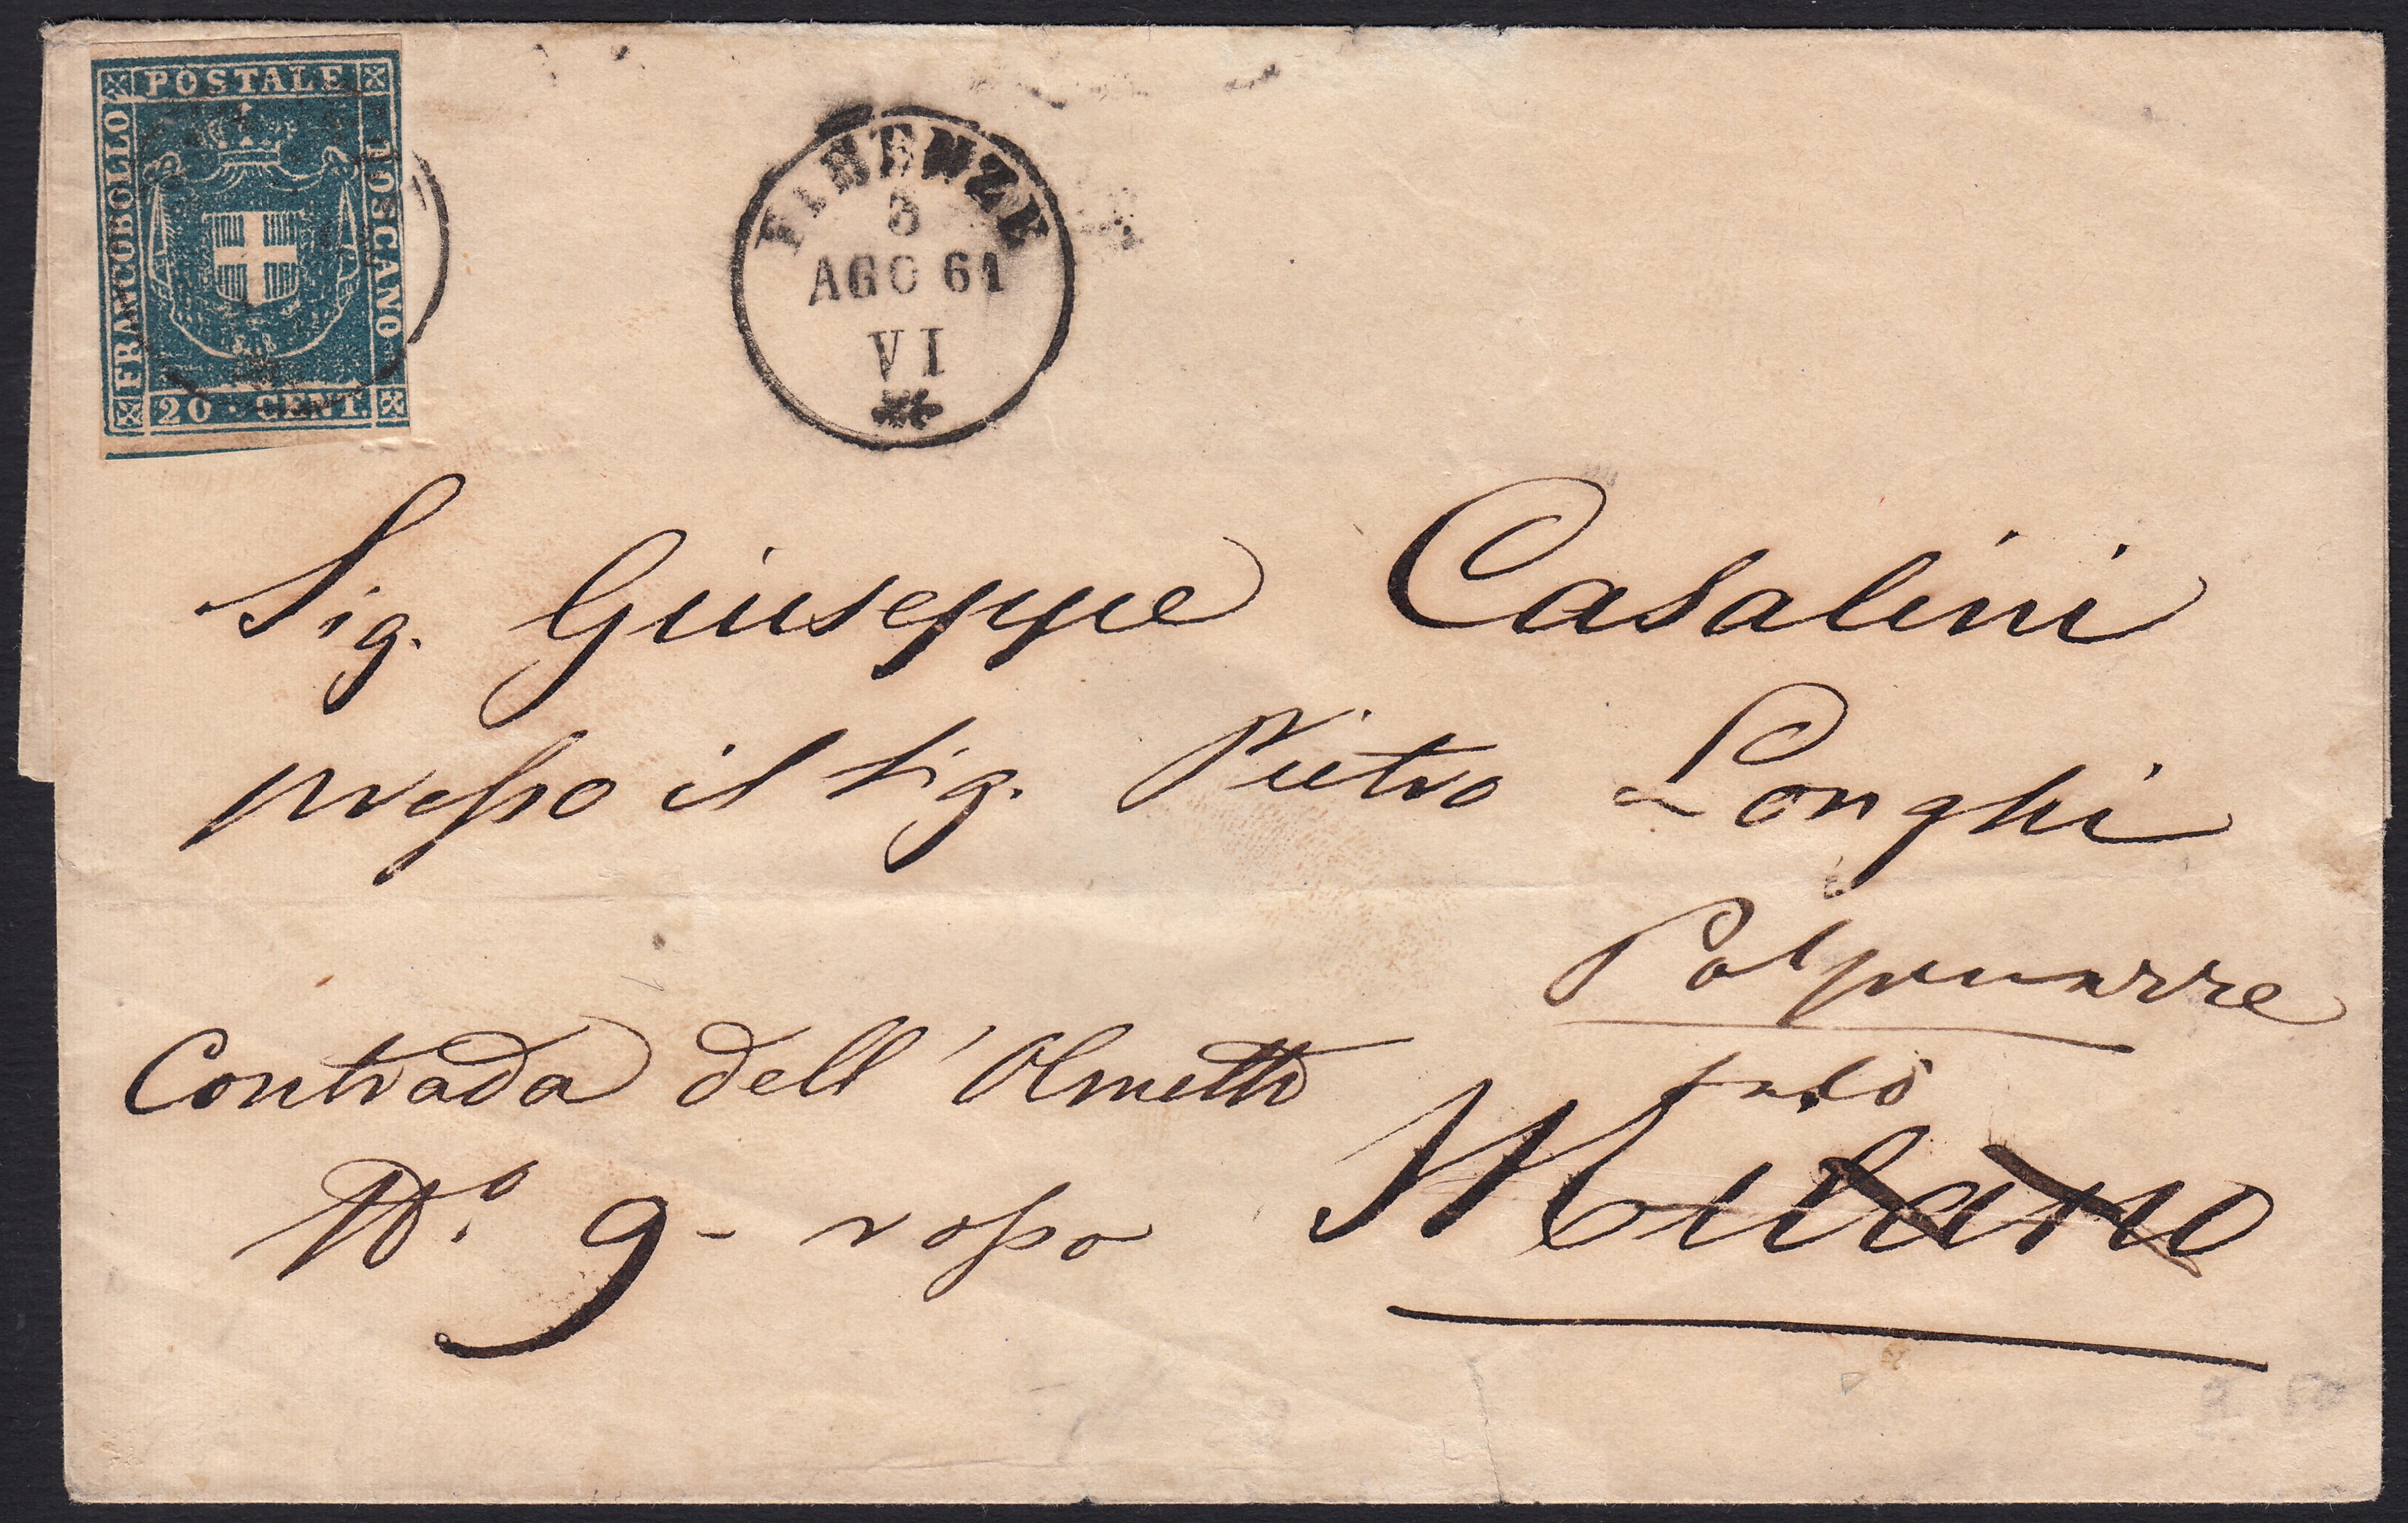 POSTALE
FRANCOBOLLO
TOSCANO
20 CENT.
FIRENZE
3
AGO 61
VI
Sig. Giuseppe Casalini
presso il Sig. Pietro Longhi
Polpenazze
Salò
Contrada dell'Olmetto
N.o 9 - rosso Milano